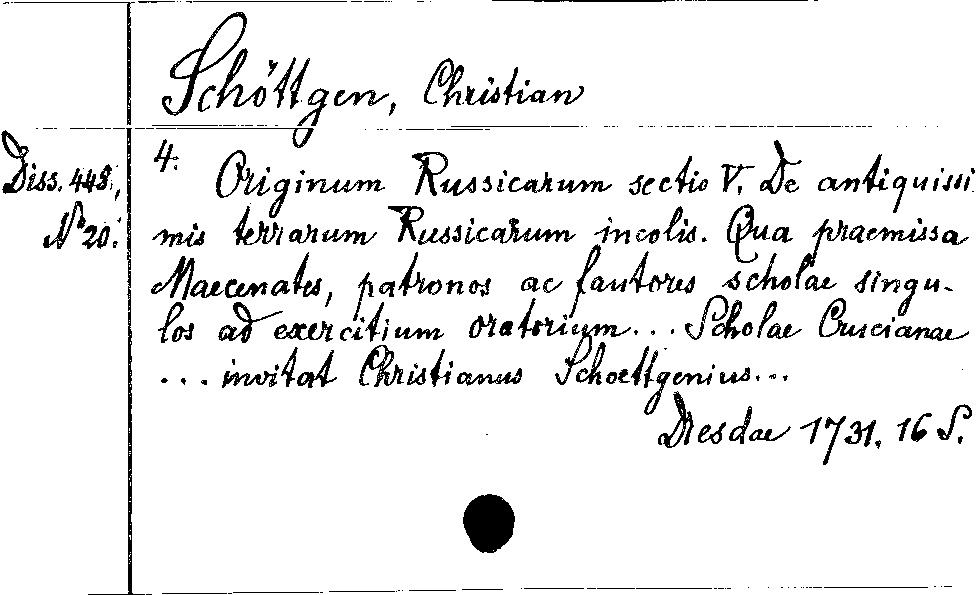 Schöttgen, Christian
Diss. 448,
No 20.
4. Originum Russicarum sectio V. De antiquissi
mis terrarum Russicarum incolis. Qua praemissa
Maecenates, patronos ac fautores scholae singu-
los ad exercitium oratorium... Scholae Crucianae
... invitat Christianus Schoettgenius...
Dresdae 1731. 16 S.